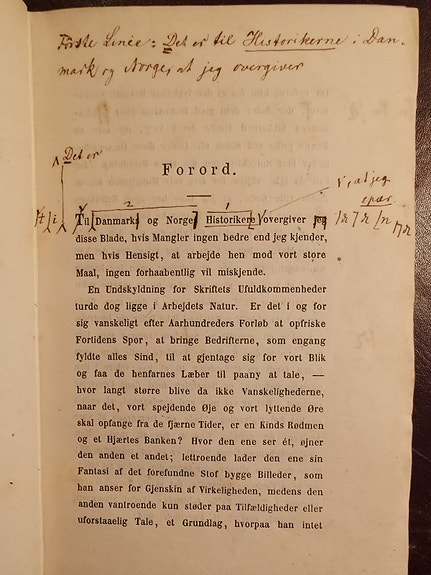 Første Linie: Det er til Historikerne i Dan-
mark og Norge, at jeg overgiver
Det er
Forord.
, at jeg
Til Danmarks og Norges Historikere overgiver jeg
disse Blade, hvis Mangler ingen bedre end jeg kjender,
men hvis Hensigt, at arbejde hen mod vort store
Maal, ingen forhaabentlig vil miskjende.
En Undskyldning for Skriftets Ufuldkommenheder
turde dog ligge i Arbejdets Natur. Er det i og for
sig vanskeligt efter Aarhundreders Forløb at opfriske
Fortidens Spor, at bringe Bedrifterne, som engang
fyldte alles Sind, til at gjentage sig for vort Blik
og faa de henfarnes Læber til paany at tale, —
hvor langt større blive da ikke Vanskelighederne,
naar det, vort spejdende Øje og vort lyttende Øre
skal opfange fra de fjærne Tider, er en Kinds Rødmen
og et Hjærtes Banken? Hvor den ene ser ét, øjner
den anden et andet; lettroende lader den ene sin
Fantasi af det forefundne Stof bygge Billeder, som
han anser for Gjenskin af Virkeligheden, medens den
anden vantroende kun støder paa Tilfældigheder eller
uforstaaelig Tale, et Grundlag, hvorpaa han intet